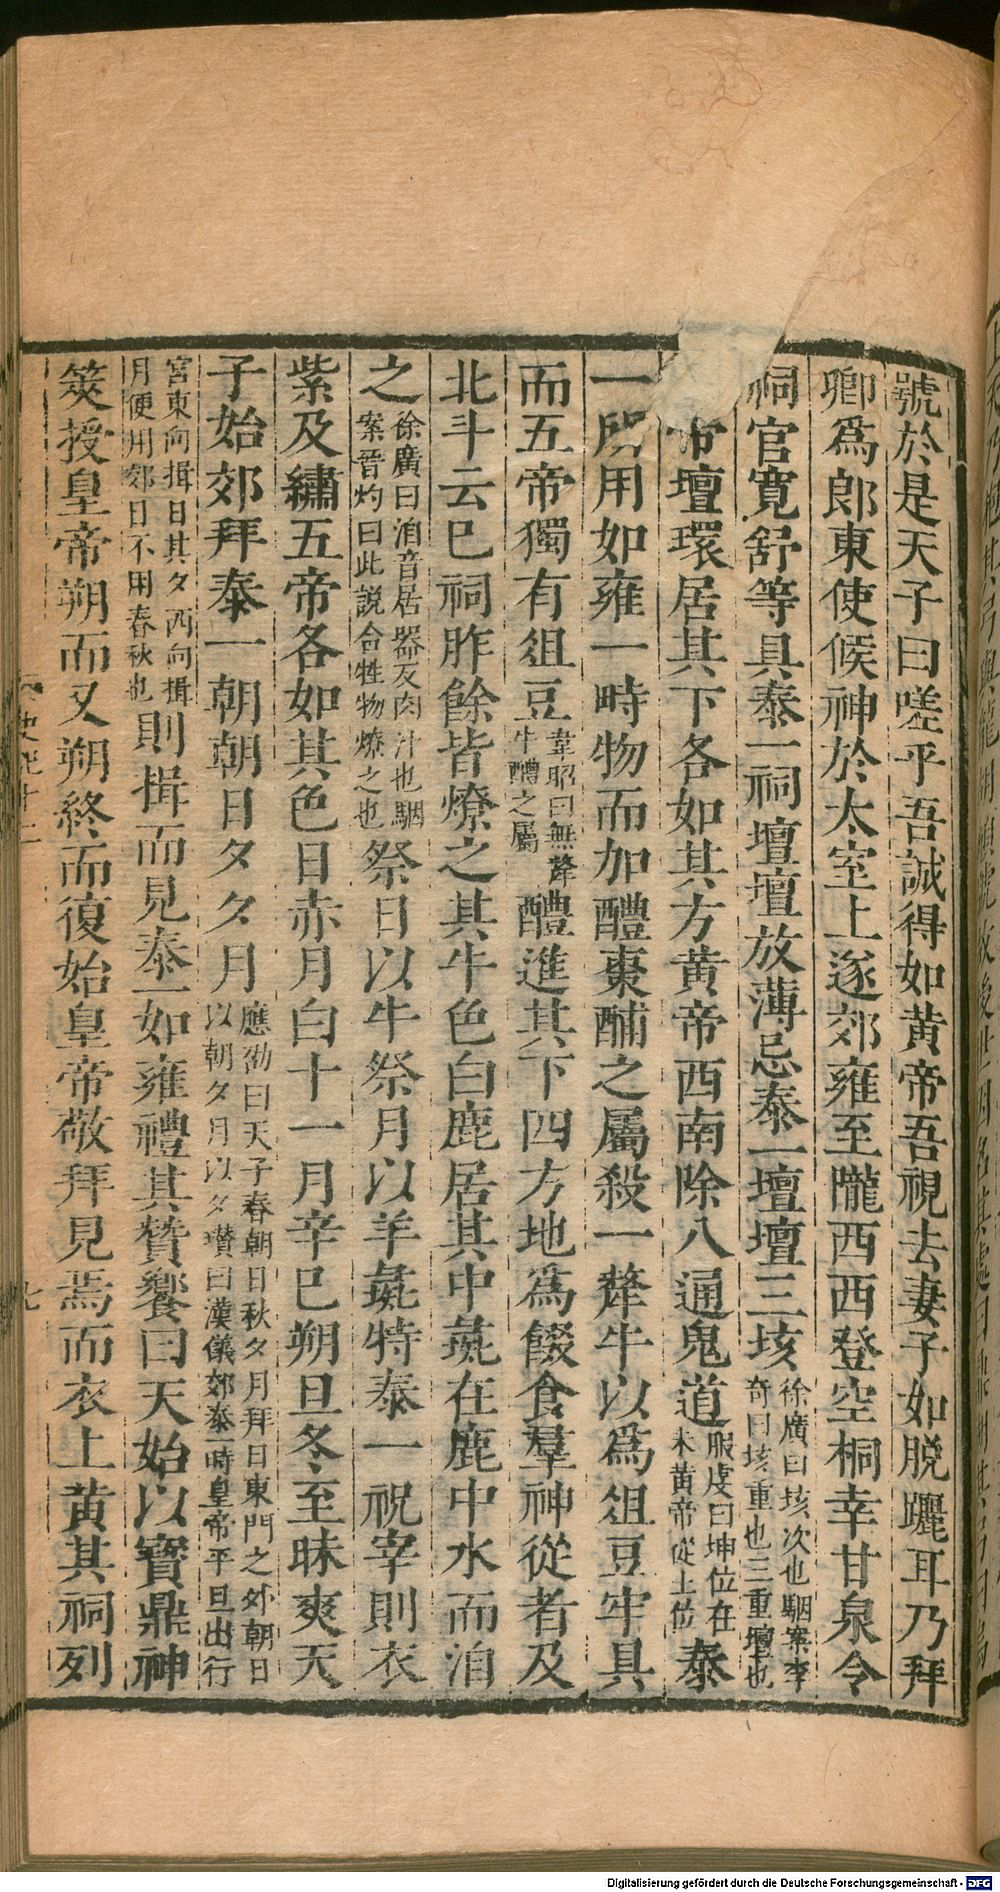 號於是天子曰嗟乎吾誠得如黃帝吾視去妻子如脫躧耳乃拜
卿爲郎東使候神於太室上遂郊雍至隴西西登空桐幸甘泉令
祠官寬舒等具泰一祠壇壇放薄忌泰一壇壇三垓徐廣曰垓次也駰案李奇曰垓重也三重壇也
帝壇環居其下各如其方黃帝西南除八通鬼道服虔曰坤位在未黃帝從土位泰
一所用如雍一畤物而加醴棗脯之屬殺一犛牛以爲俎豆牢具
而五帝獨有俎豆韋昭曰無犛牛醴之屬醴進其下四方地爲餟食羣神從者及
北斗云已祠胙餘皆燎之其牛色白鹿居其中彘在鹿中水而洎
之徐廣曰洎音居器反肉汁也駰案晉灼曰此說合牲物燎之也祭日以牛祭月以羊彘特泰一祝宰則衣
紫及繡五帝各如其色日赤月白十一月辛巳朔旦冬至昧爽天
子始郊拜泰一朝朝日夕夕月應劭曰天子春朝日秋夕月拜日東門之外朝日以朝夕月以夕瓚曰漢儀郊泰一畤皇帝平旦出行
宮東向揖日其夕西向揖月便用郊日不用春秋也則揖而見泰一如雍禮其贊饗曰天始以寶鼎神
筴授皇帝朔而又朔終而復始皇帝敬拜見焉而衣上黃其祠列
七
Digitalisierung gefördert durch die Deutsche Forschungsgemeinschaft - DFG